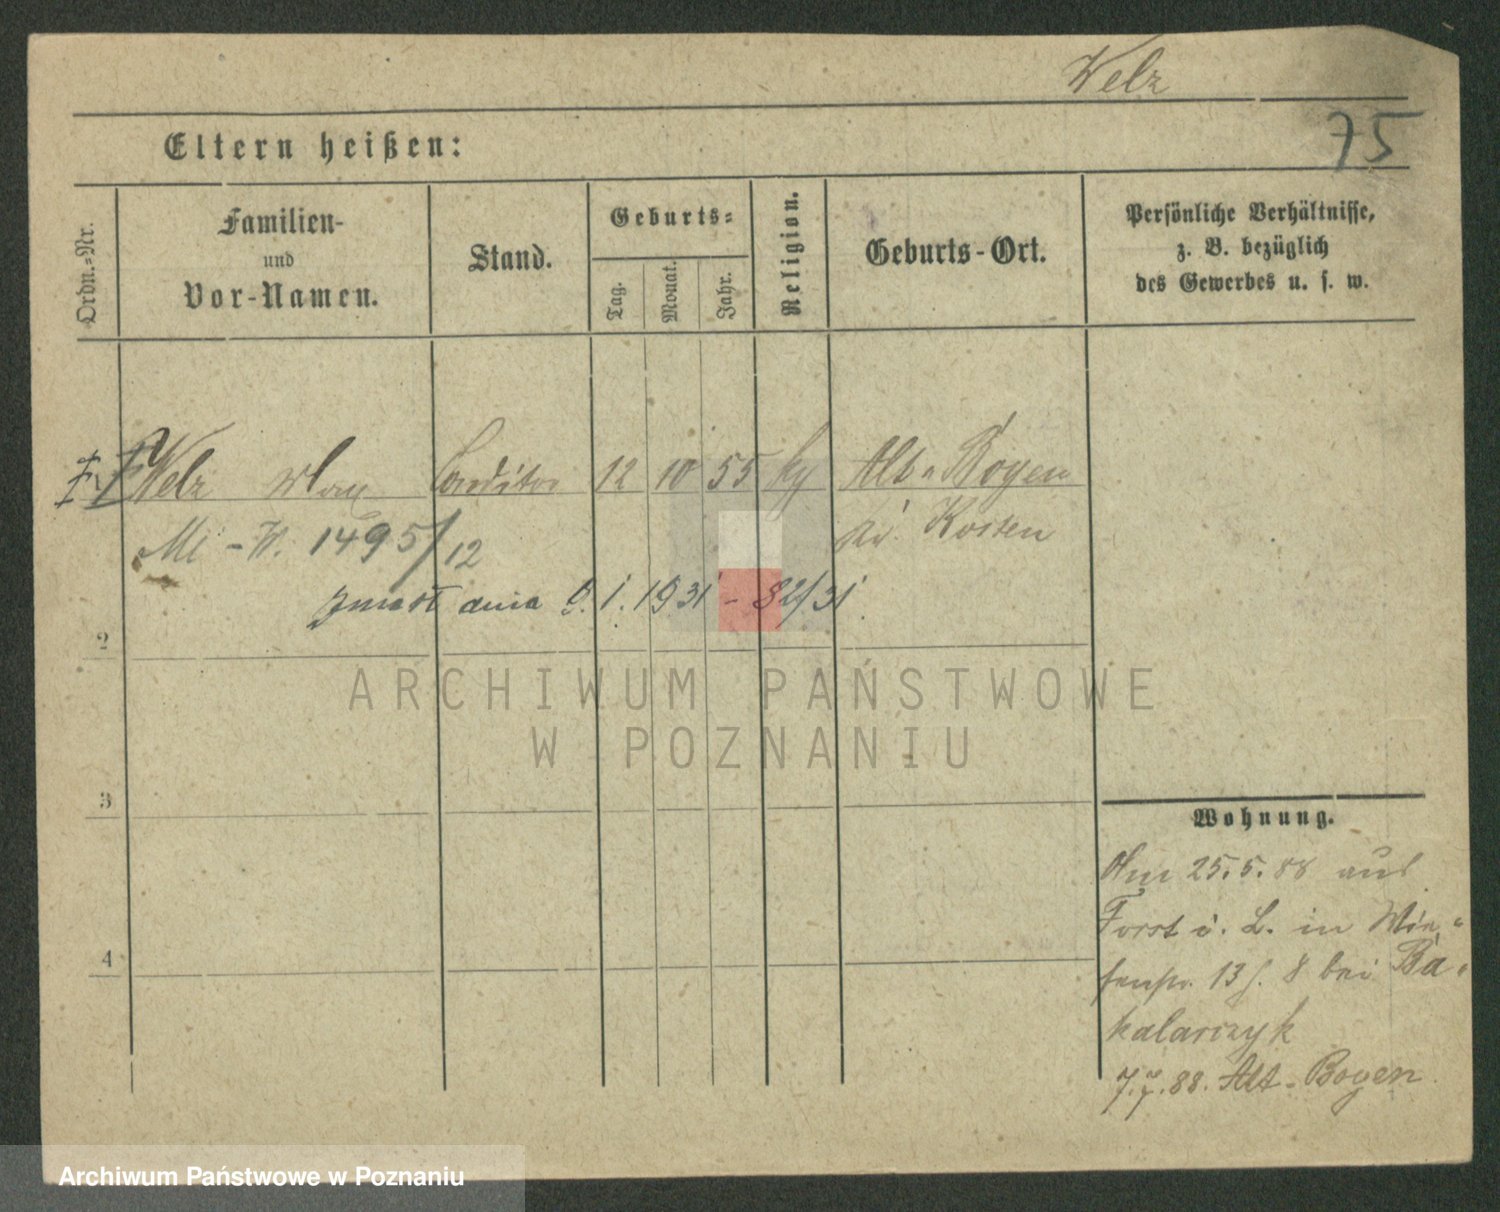 Welz
75
Eltern heißen:
Ordn.-Nr.
Familien-
und
Vor-Namen.
Stand.
Geburts-
Tag.
Monat.
Jahr.
Religion.
Geburts-Ort.
Persönliche Verhältnisse,
z. B. bezüglich
des Gewerbes u. s. w.
Welz Max Conditor 12 10 55 Alt-Boyen
Kosten
1495/12
zmarł dnia 6. 1. 1931 - 82/31
2
3
4
ARCHIWUM PAŃSTWOWE
W POZNANIU
Wohnung.
Am 25.5.88 aus
Forst i. L. in Wie-
senstr. 13 8 bei Ba-
kalarczyk
7.7.88. Alt-Boyen
Archiwum Państwowe w Poznaniu